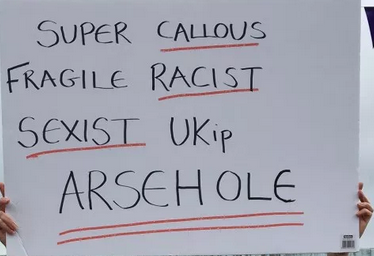 SUPER CALLOUS
FRAGILE RACIST
SEXIST UKip
ARSEHOLE